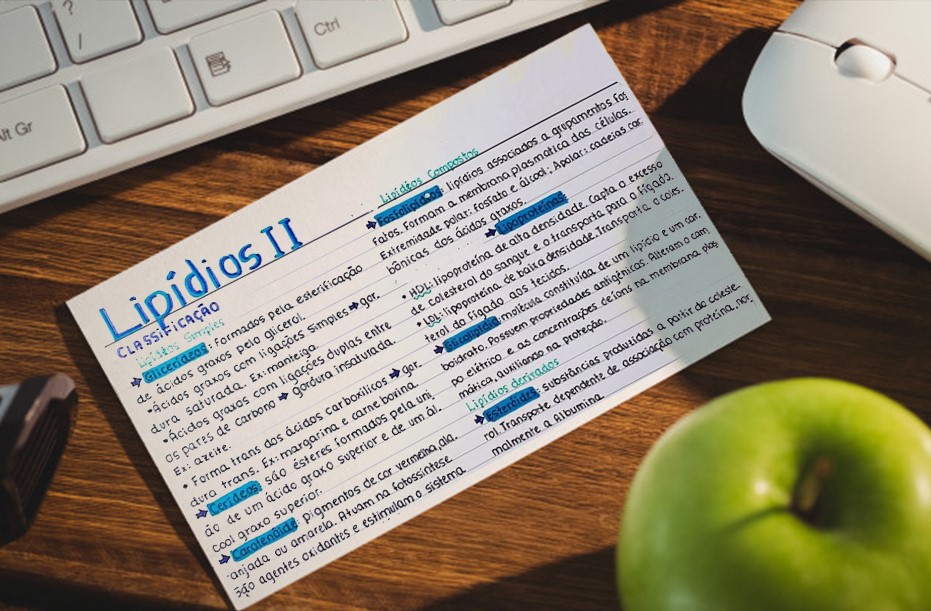 ?
/
Ctrl
Alt Gr
Lipídios II
CLASSIFICAÇÃO
Lipídeos Simples
Glicerídeos: Formados pela esterificação
de ácidos graxos pelo glicerol.
•Ácidos graxos com ligações simples ➜ gor.
dura saturada. Ex: manteiga.
•Ácidos graxos com ligações duplas entre
os pares de carbono ➜ gordura insaturada.
Ex: azeite.
• Forma trans dos ácidos carboxílicos ➜ gor.
dura trans. Ex: margarina e carne bovina.
➜ Cerídeos: são ésteres formados pela uni
ão de um ácido graxo superior e de um ál.
cool graxo superior.
➜ Carotenóide: pigmentos de cor vermelha, ala.
anjada ou amarela. Atuam na fotossíntese
são agentes oxidantes e estimulam o sistema
Lipídeos Compostos
➜ Fosfolipídeos: lipídios associados a grupamentos fos
fatos. Formam a membrana plasmática das células.
Extremidade polar: fosfato e álcool; Apolar: cadeias car
bônicas dos ácidos graxos.
➜ Lipoproteínas
• HDL: lipoproteína de alta densidade. Capta o excesso
de colesterol do sangue e o transporta para o fígado.
• LDL: lipoproteína de baixa densidade. Transporta o coles.
terol do fígado aos tecidos.
➜ Glicolipídio: molécula constituída de um lipício e um car.
boidrato. Possuem propriedades antigênicas. Alteram o cam
po elétrico e as concentrações de íons na membrana plas
mática, auxiliando na proteção.
Lipídios derivados
➜ Esteróides: substâncias produzidas a partir do coleste.
rol. Transporte dependente de associação com proteína, nor,
malmente a Albumina.